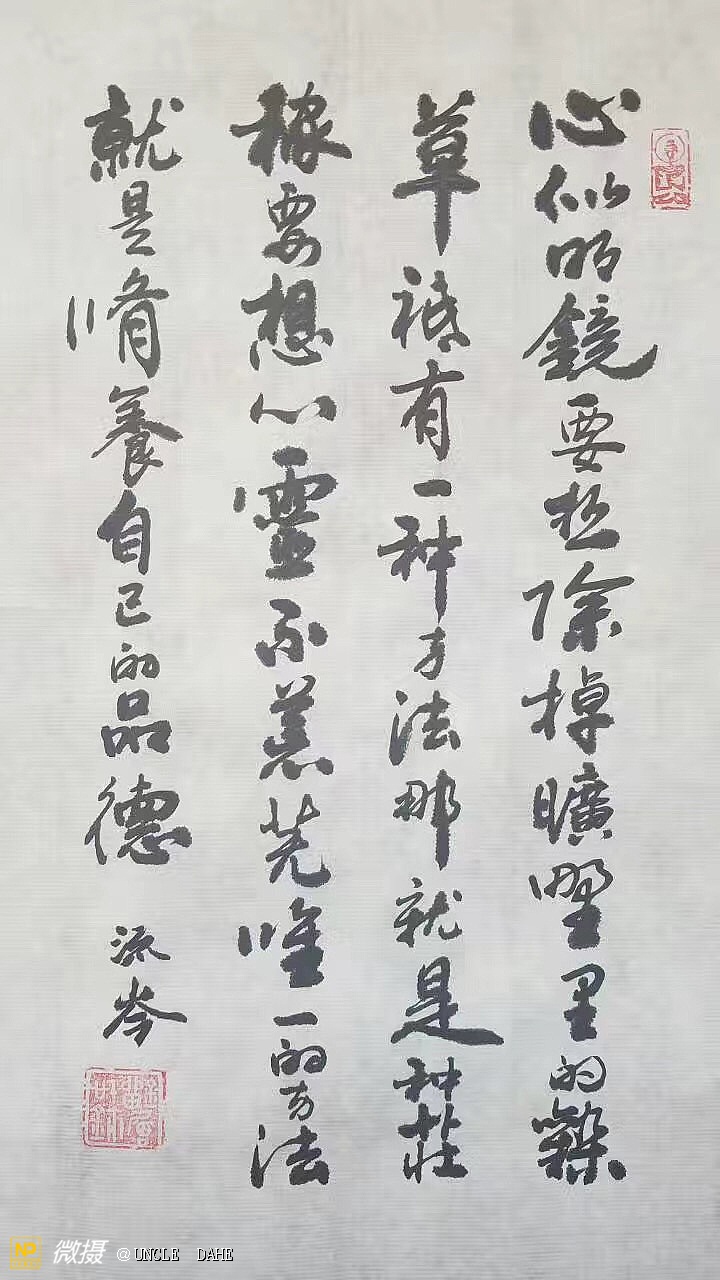 心似明鏡要想除掉曠野里的雜
草祗有一种方法那就是种莊
稼要想心靈不荒蕪唯一的方法
就是脩養自己的品德
流岑
微摄 @UNCLE DAHE